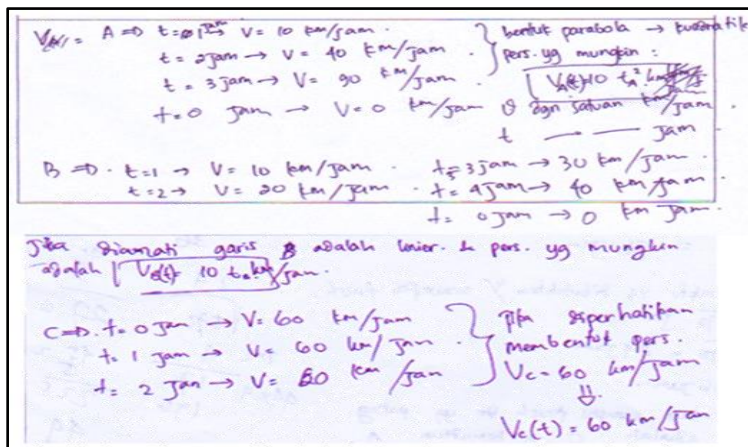 A ⇒ t = 1 jam → V = 10 km/jam
t = 2 jam → V = 40 km/jam
t = 3 jam → V = 90 km/jam
t = 0 jam → V = 0 km/jam
bentuk parabola → kuadratik
pers. yg mungkin :
km/jam
V dgn satuan km/jam
t — — jam
B ⇒ t = 1 → V = 10 km/jam . t = 3 jam → 30 km/jam
t = 2 → V = 20 km/jam . t = 4 jam → 40 km/jam
t = 0 jam → 0 km jam.
Jika diamati garis B adalah linier. & pers. yg mungkin
adalah V_B(t) = 10 t km/jam.
C ⇒ t = 0 jam → V = 60 km/jam
t = 1 jam → V = 60 km/jam
t = 2 jam → V = 60 km/jam
Jika diperhatikan
membentuk pers.
V_C = 60 km/jam
⇓
V_C(t) = 60 km/jam